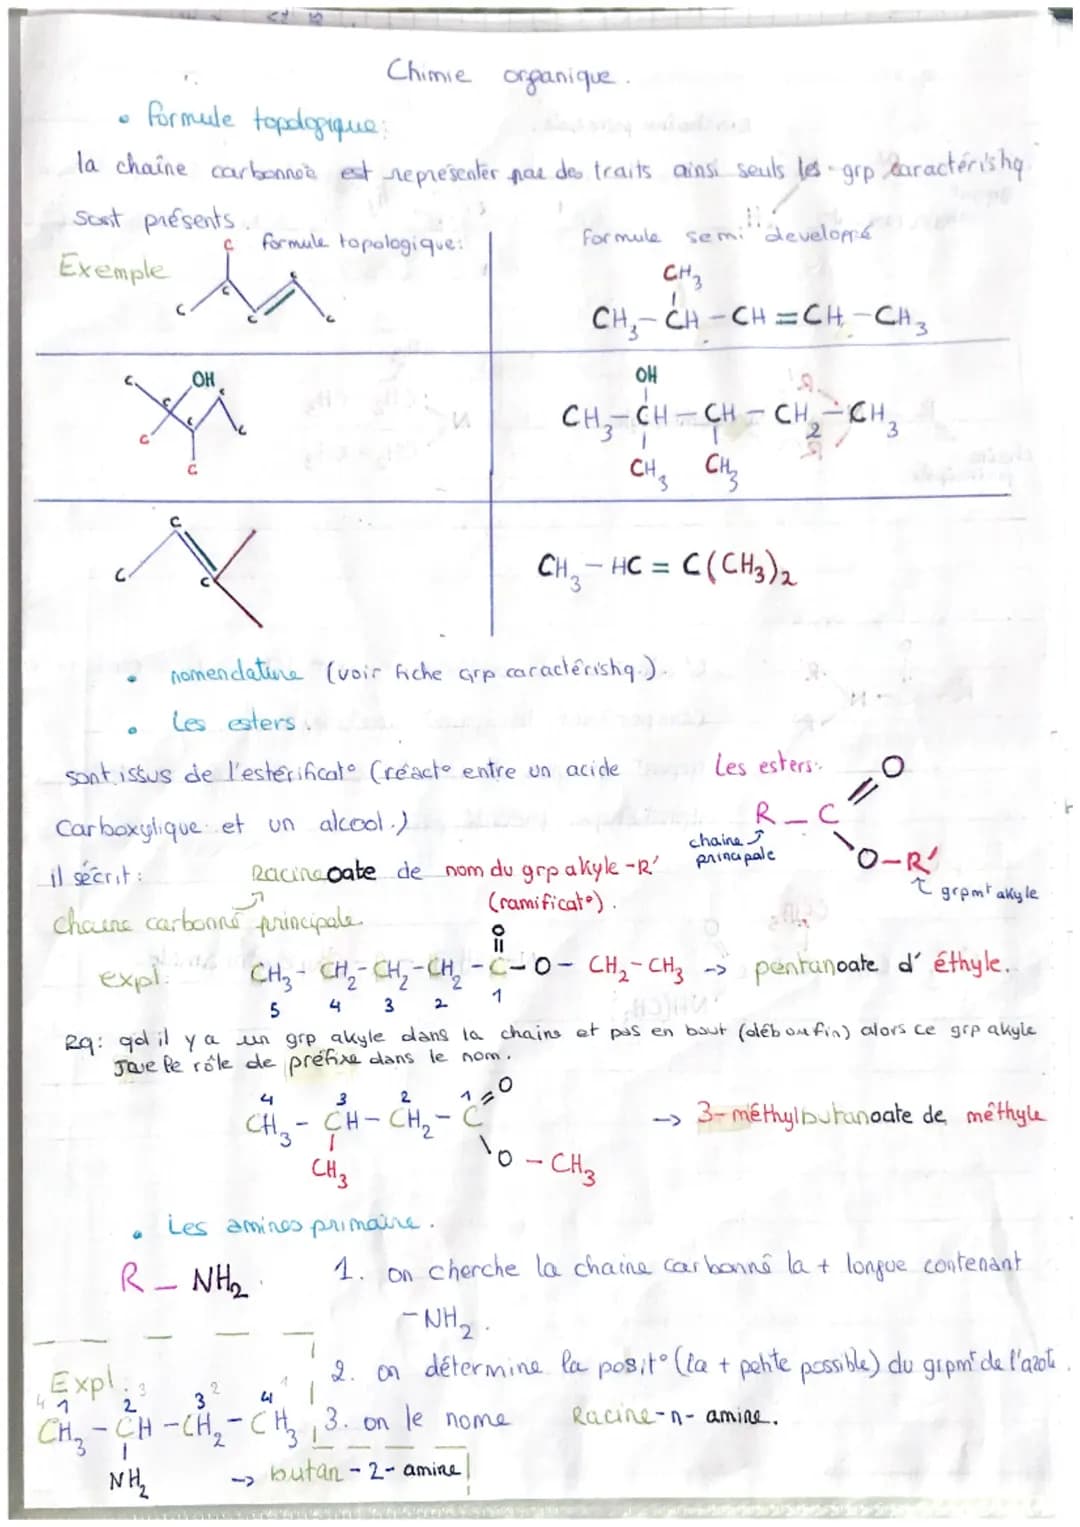 Chimie organique.
• formule topologique:
la chaîne carbonnée est représenter par des traits ainsi seuls les grp caractéristiq.
sont présents.
Exemple
formule topologique:
formule semi developpé
C
C C C C C
CH3
CH3-CH-CH=CH-CH3
C OH C
C C C
C C
OH
CH3-CH-CH-CH2-CH3
CH3 CH3
C
C C
CH3-HC=C(CH3)2
• nomenclature (voir fiche grp caractéristiq.).
• Les esters.
sont issus de l'estérificat° (réact° entre un acide
Carboxylique et un alcool.)
Les esters:
R-C
O
O-R'
chaine principale
grpmt akyle
il sécrit:
Racineoate de nom du grp akyle -R'
(ramificat°).
chaine carbonné principale
expl:
O
CH3-CH2-CH2-CH2-C-O-CH2-CH3 -> pentanoate d'éthyle.
5 4 3 2 1
Rq: qd il y a un grp akyle dans la chaine et pas en bout (déb ou fin) alors ce grp akyle
joue le rôle de préfixe dans le nom.
4 3 2 1 O
CH3-CH-CH2-C
CH3
O-CH3
-> 3-méthylbutanoate de méthyle
• Les amines primaire.
R-NH2
1. on cherche la chaine carbonné la + longue contenant
-NH2.
2. on détermine la posit° (la + petite possible) du grpmt de l'azote.
3. on le nome Racine-n-amine.
Expl:
4 3 2 1
1 2 3 4
CH3-CH-CH2-CH3
NH2
-> butan-2-amine